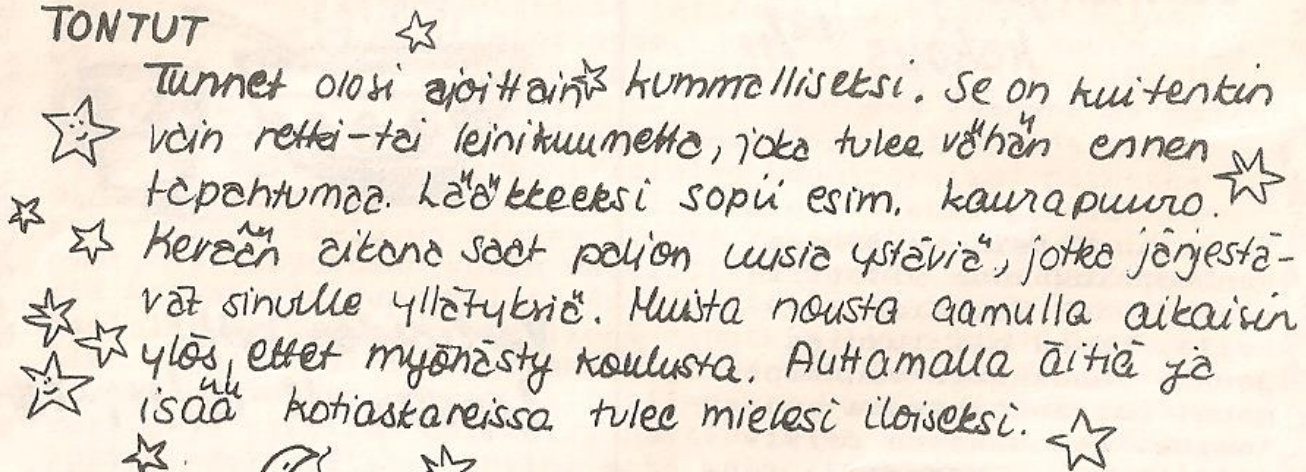 TONTUT
Tunnet olosi ajoittain kummalliseksi. Se on kuitenkin
vain retki-tai leirikuumetta, joka tulee vähän ennen
tapahtumaa. Lääkkeeksi sopii esim. kaurapuuro.
Kerään aikana saat paljon uusia ystäviä, jotka järjestä-
vät sinulle yllätyksiä. Muista nousta aamulla aikaisin
ylös, ettet myöhästy koulusta. Auttamalla äitiä ja
isää kotiaskareissa tulee mielesi iloiseksi.